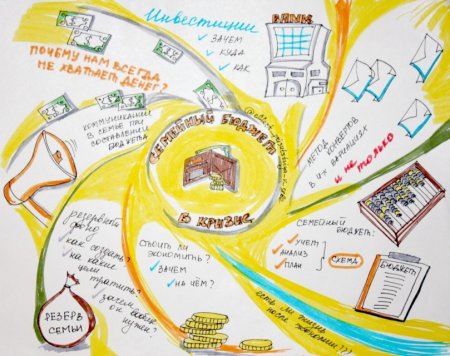 Инвестиции
зачем
куда
как
BANK
Почему нам всегда
не хватает денег?
коммуникации
в семье при
составлении
бюджета
Семейный бюджет
в кризис
метод конвертов
в их вариациях
и не только
Семейный
бюджет:
учет
анализ
план
схема
Бюджет
резервный
фонд
как создать?
на какие
цели
тратить?
зачем
он вообще
нужен?
Резерв
семьи
Стоит ли
экономить?
зачем
на чём?
есть ли жизнь
после экономии???